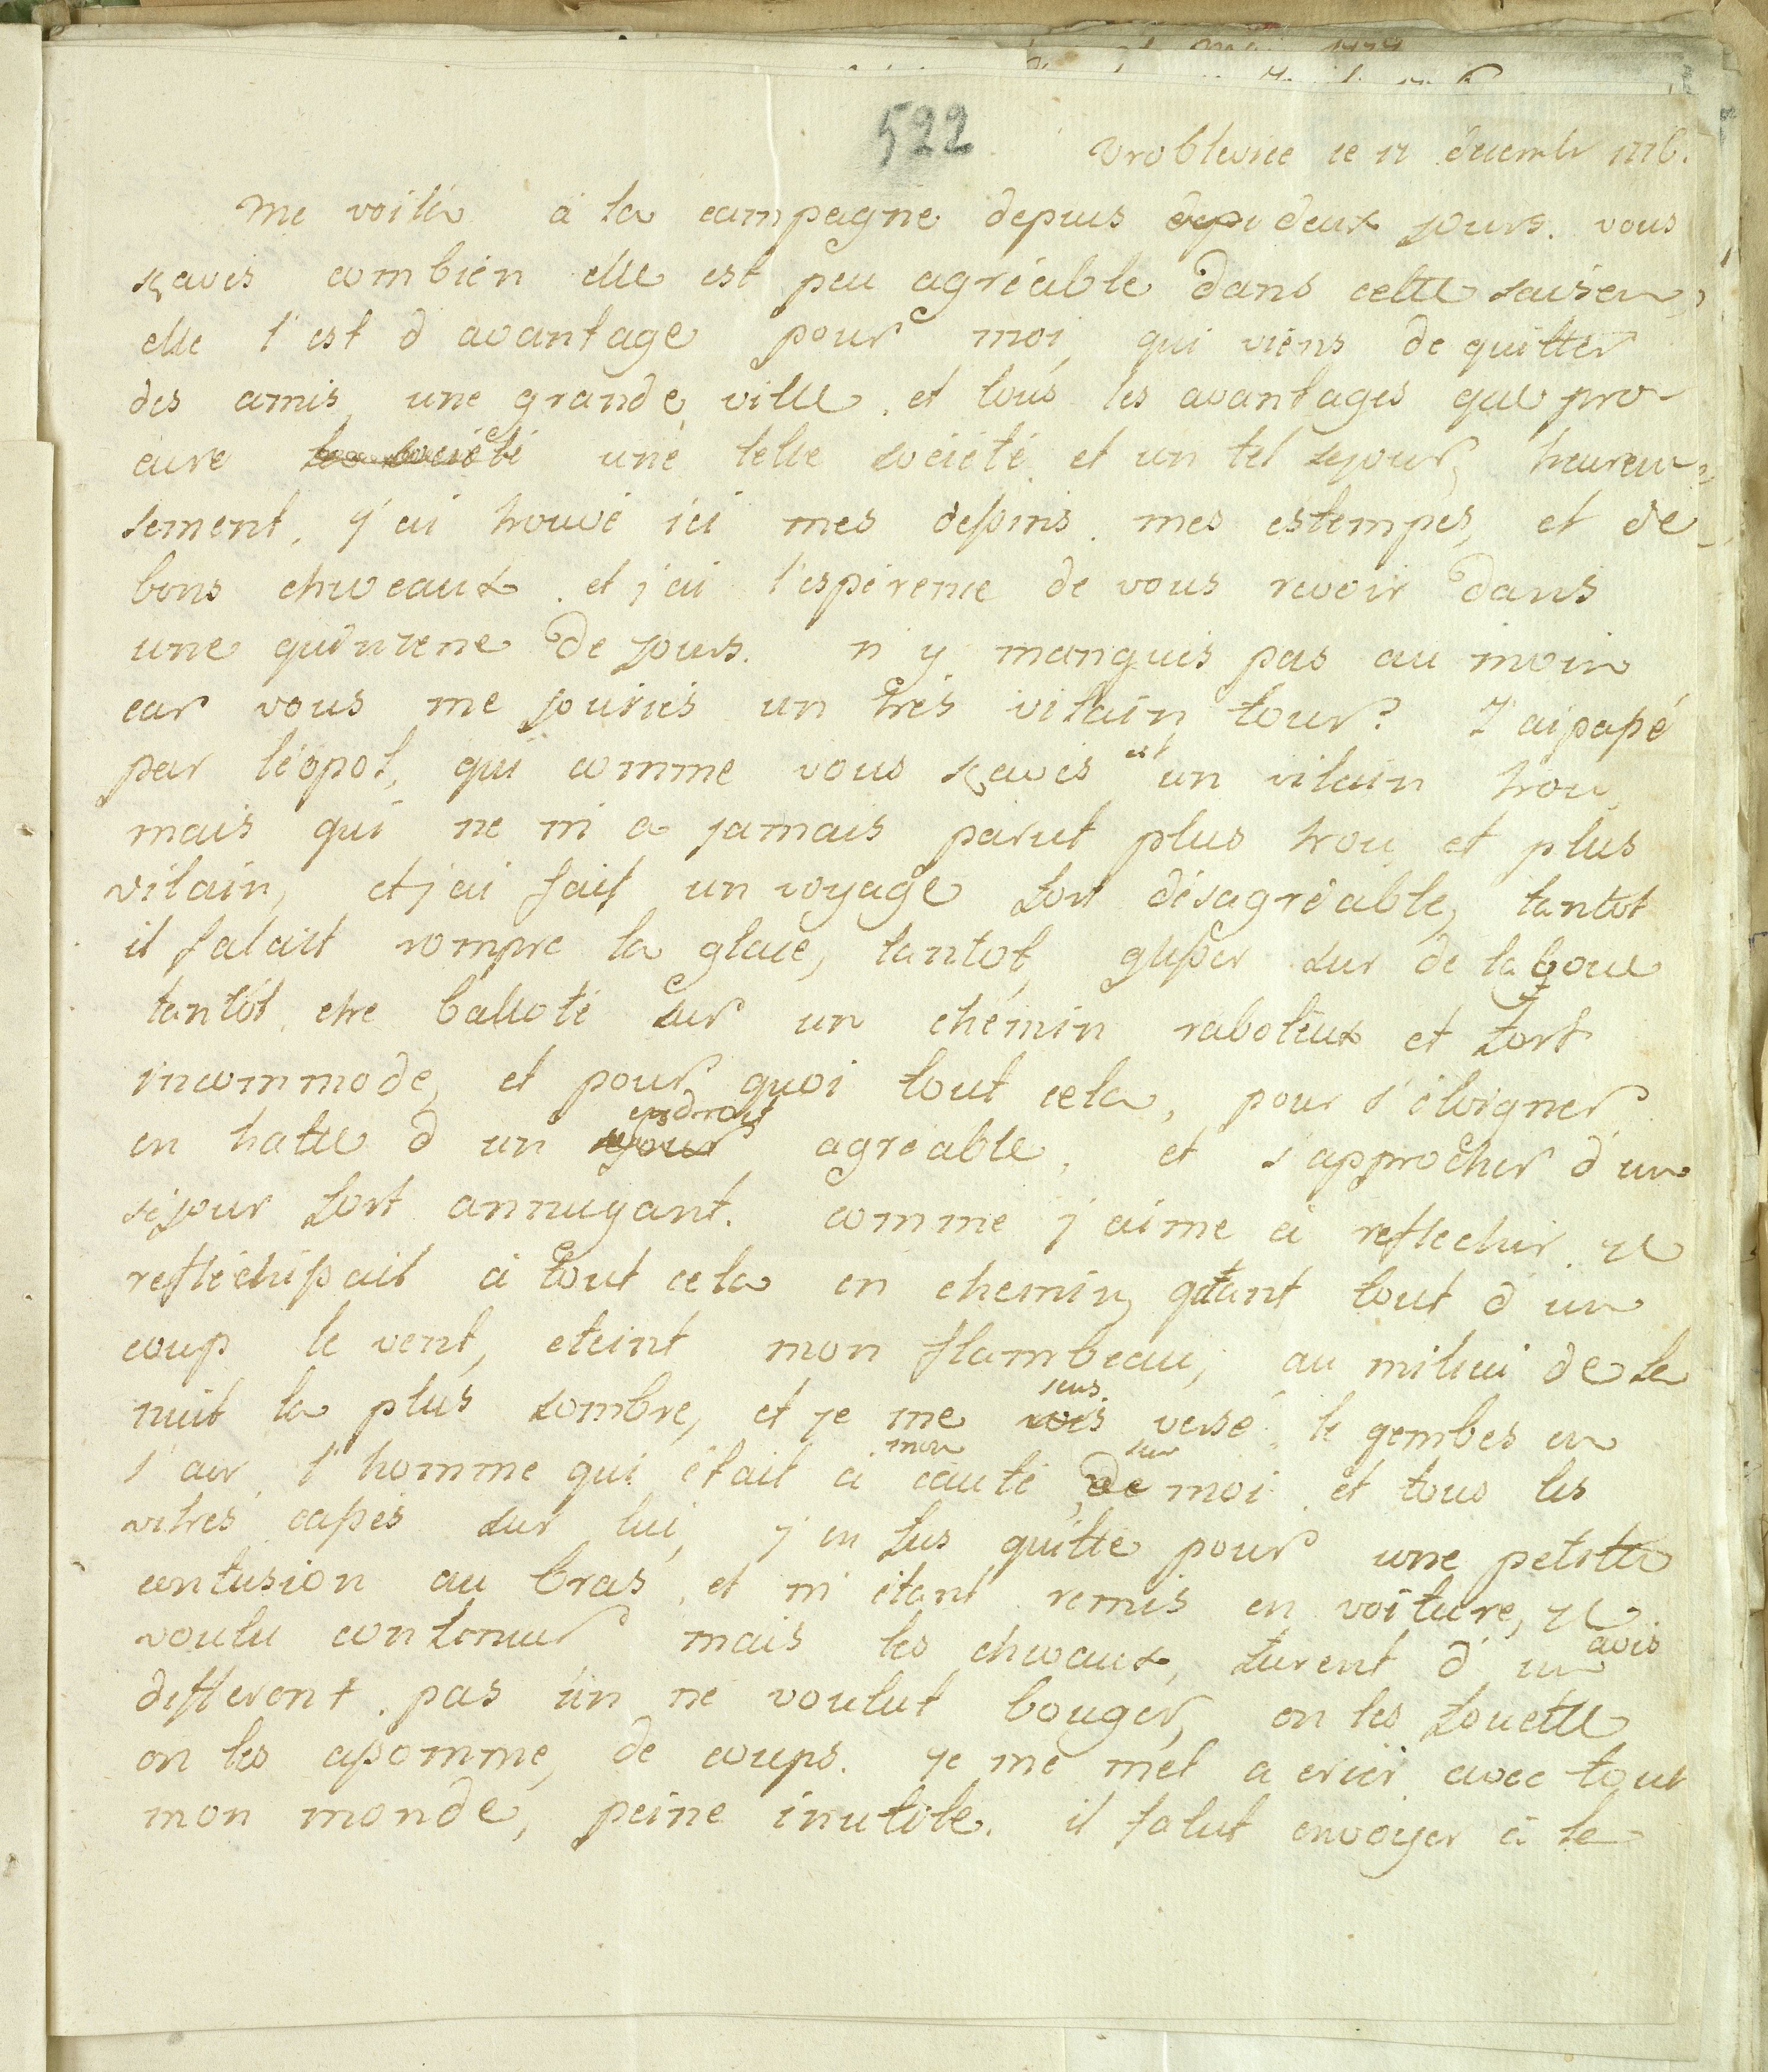 522
Vroblewice ce 17 décembr 1776.
Me voilà à la campagne depuis depi deux jours. vous
sçavés combien elle est peu agréable dans cette saison,
elle l'est d avantage pour moi, qui viens de quitter
des amis, une grande ville, et tous les avantages que pro-
cure la société une telle société et un tel sejour, heureu=
sement, j'ai trouvé ici mes dessins, mes estempes, et de
bons chweaux, et j'ai l'espérence de vous revoir dans
une quinzene de jours. n y manqués pas au moin
car vous me jouriés un très vilain tour? J'ai passé
par léopol, qui comme vous sçavés est un vilain trou,
mais qui ne m a jamais parut plus trou, et plus
vilain, et j'ai fait un voyage fort désagréable, tantot
il falait rompre la glace, tantot, glisser sur de la boue
tantôt, etre balloté sur un chémin raboteux et fort
incommode, et pour quoi tout cela, pour s'éloigner
en hatte d un sejour endroit agréable, et s'approcher d'un
séjour fort annuyant. comme j'aime à reflechir, je
refléchissait à tout cela en chemin, quant tout d'un
coup le vent, eteint mon flambeau, au milieu de la
nuit la plus sombre, et je me vois suis versé, le gembes en
l'air, l'homme qui était à mon cauté, de sur moi, et tous les
vitres cassés sur lui, j'en fus quitte pour une petitte
contusion au bras, et m'étant remis en voiture, je
voulu continuer mais les chevaux, furent d'un avis
different, pas un ne voulut bouger, on les fouette
on les assomme, de coups. je me met a crier avec tout
mon monde, peine inutile. il falut envoyer à la